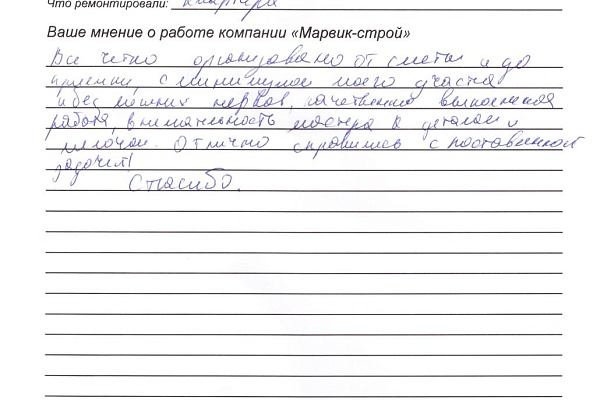 Что ремонтировали: квартира
Ваше мнение о работе компании «Марвик-строй»
Все четко организовано от сметы и до
приемки, с минимумом моего участия
и без лишних нервов, качественно выполненная
работа, внимательность мастера к деталям и
мелочам. Отлично справились с поставленной
задачей!
Спасибо.